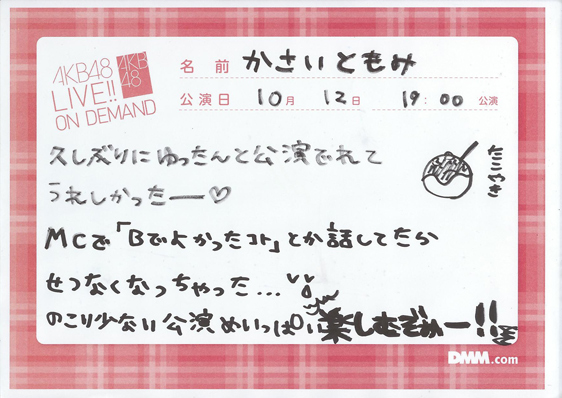 AKB48
LIVE!!
ON DEMAND
AKB
48
名前 かさいともみ
公演日 10月 12日 19:00 公演
久しぶりにゆったんと公演でれて
うれしかったー♡
たこやき
MCで「Bでよかったコト」とか話してたら
せつなくなっちゃった...
のこり少ない公演めいっぱい楽しむぞぉー!!
DMM.com